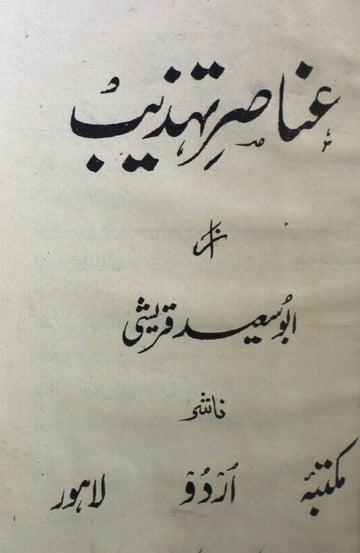 عناصرِ تہذیب
از
ابو سعید قریشی
ناشر
مکتبۂ اُردُو لاہور